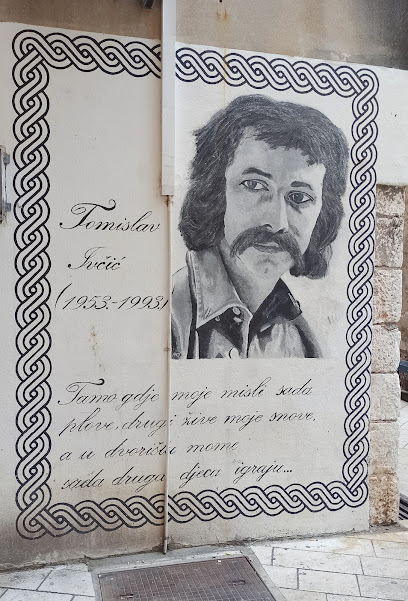 Tomislav
Ivčić
(1953.-1993)
Tamo gdje moje misli sada
plove, drugi žive moje snove,
a u dvorištu mome
sada druga djeca igraju...